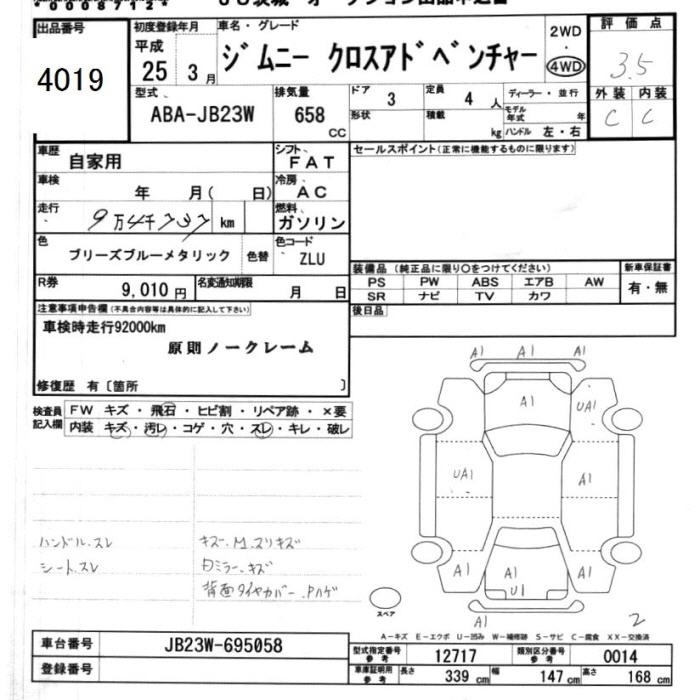 00087124 JU茨城 オークション出品申込書
出品番号
4019
初度登録年月
平成
25 3月
車名・グレード
ジムニー クロスアドベンチャー
2WD
・
4WD
評価点
3.5
外装 内装
C C
型式
ABA-JB23W
排気量
658
CC
ドア 3
定員 4 人
ディーラー・並行
形状
積載 kg
モデル年式 年
ハンドル 左・右
車歴
自家用
シフト
FAT
セールスポイント(正常に機能するものに限ります)
車検
年 月( 日)
冷房
AC
走行
9万4千737 km
燃料
ガソリン
色
ブリーズブルーメタリック
色替
色コード
ZLU
R券
9,010円
名変通知期限
月 日
装備品(純正品に限り〇をつけてください)
PS PW ABS エアB AW
SR ナビ TV カワ
新車保証書
有・無
後日品
注意事項申告欄(不具合内容等は具体的に記入して下さい)
車検時走行92000km
原則ノークレーム
修復歴 有〔箇所 〕
検査員記入欄
FW キズ・飛石・ヒビ割・リペア跡・×要
内装 キズ・汚レ・コゲ・穴・スレ・キレ・破レ
ハンドル.スレ
シート.スレ
キズ.M.スリキズ
ミラー.キズ
背面タイヤカバー.Pハゲ
A1 A1 A1
A1
UA1
UA1
A1
A1 A1 A1
U1
A1
スペア
2
A-キズ E-エクボ U-凹み W-補修跡 S-サビ C-腐食 XX-交換済
車台番号
JB23W-695058
型式指定番号
参考
12717
類別区分番号
参考
0014
登録番号
車庫証明用
参考
長さ 339 cm 幅 147 cm 高さ 168 cm